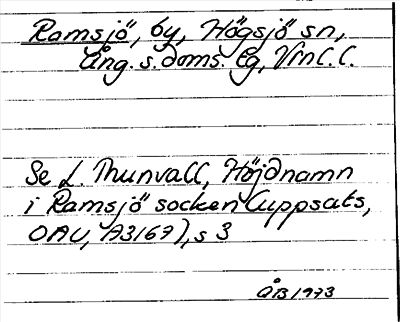 Ramsjö, by, Högsjö sn,
Ång. s. doms. lg, Vnl. l.
Se L. Thunvall, Höjdnamn
i Ramsjö socken (uppsats,
OAU, A3167), s 3
ÅB 1973